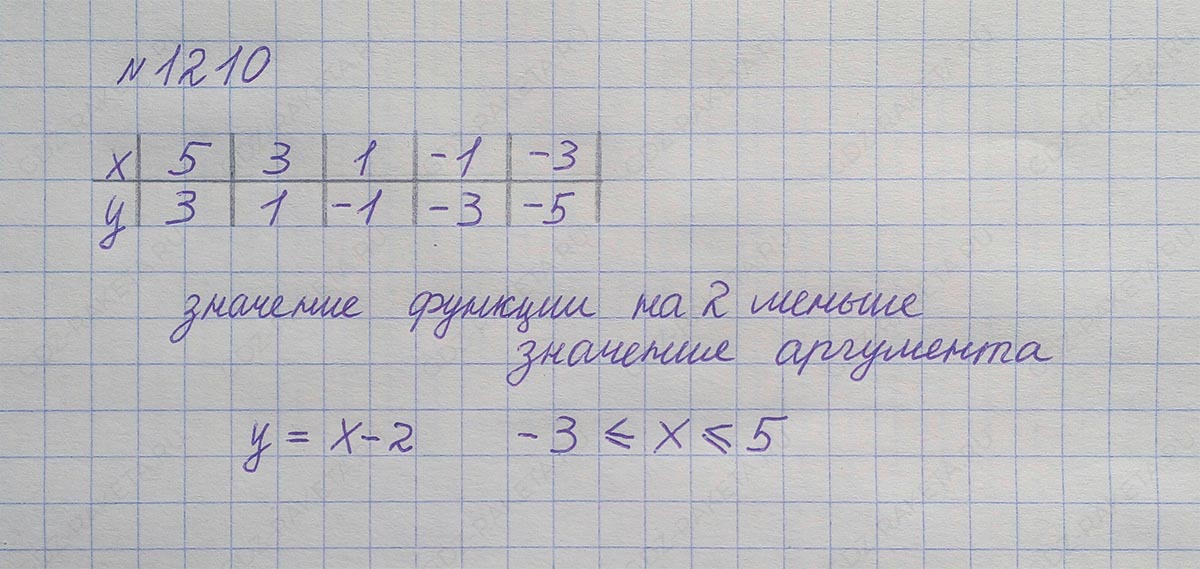 №1210
x 5 3 1 -1 -3
y 3 1 -1 -3 -5
значение функции на 2 меньше
значение аргумента
y = x-2 -3 ≤ x ≤ 5